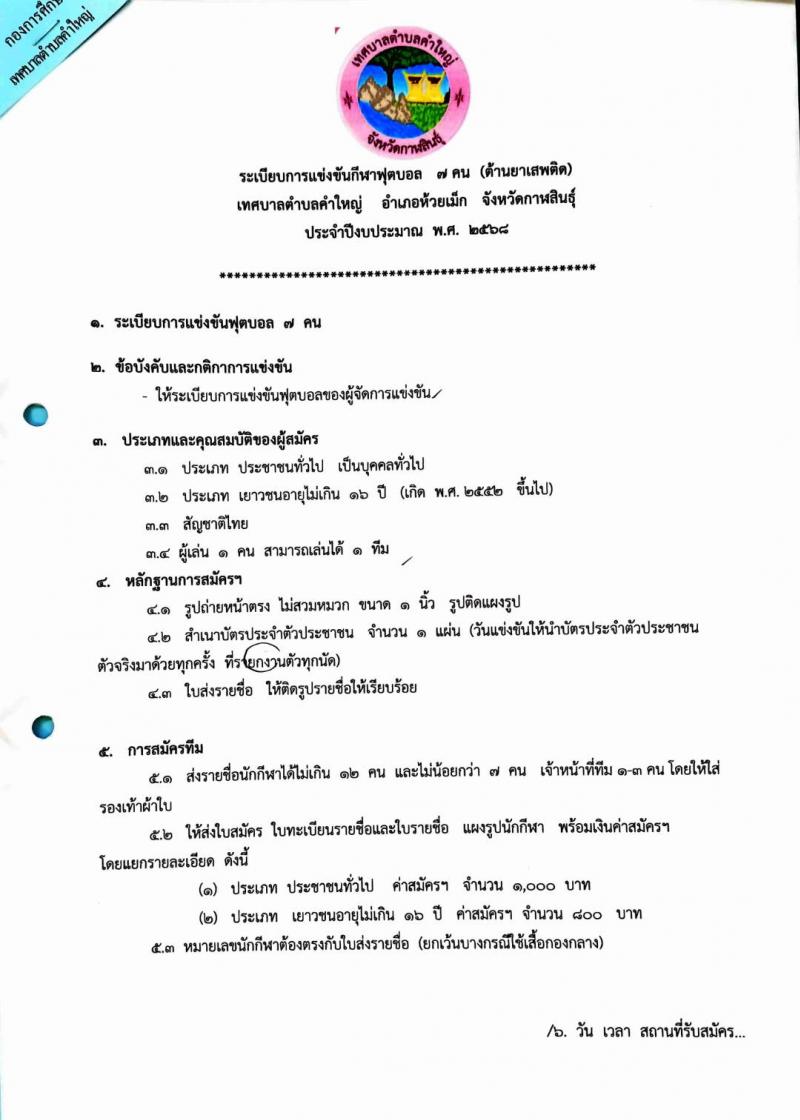 กองการศึกษ
เทศบาลตำบลคำใหญ่
เทศบาลตำบลคำใหญ่
จังหวัดกาฬสินธุ์
ระเบียบการแข่งขันกีฬาฟุตบอล ๗ คน (ต้านยาเสพติด)
เทศบาลตำบลคำใหญ่ อำเภอห้วยเม็ก จังหวัดกาฬสินธุ์
ประจำปีงบประมาณ พ.ศ. ๒๕๖๘
**************************************************
๑. ระเบียบการแข่งขันฟุตบอล ๗ คน
๒. ข้อบังคับและกติกาการแข่งขัน
- ให้ระเบียบการแข่งขันฟุตบอลของผู้จัดการแข่งขัน
๓. ประเภทและคุณสมบัติของผู้สมัคร
๓.๑ ประเภท ประชาชนทั่วไป เป็นบุคคลทั่วไป
๓.๒ ประเภท เยาวชนอายุไม่เกิน ๑๖ ปี (เกิด พ.ศ. ๒๕๕๒ ขึ้นไป)
๓.๓ สัญชาติไทย
๓.๔ ผู้เล่น ๑ คน สามารถเล่นได้ ๑ ทีม
๔. หลักฐานการสมัครฯ
๔.๑ รูปถ่ายหน้าตรง ไม่สวมหมวก ขนาด ๑ นิ้ว รูปติดแผงรูป
๔.๒ สำเนาบัตรประจำตัวประชาชน จำนวน ๑ แผ่น (วันแข่งขันให้นำบัตรประจำตัวประชาชน
ตัวจริงมาด้วยทุกครั้ง ที่รายกงานตัวทุกนัด)
๔.๓ ใบส่งรายชื่อ ให้ติดรูปรายชื่อให้เรียบร้อย
๕. การสมัครทีม
๕.๑ ส่งรายชื่อนักกีฬาได้ไม่เกิน ๑๒ คน และไม่น้อยกว่า ๗ คน เจ้าหน้าที่ทีม ๑-๓ คน โดยให้ใส่
รองเท้าผ้าใบ
๕.๒ ให้ส่งใบสมัคร ใบทะเบียนรายชื่อและใบรายชื่อ แผงรูปนักกีฬา พร้อมเงินค่าสมัครฯ
โดยแยกรายละเอียด ดังนี้
(๑) ประเภท ประชาชนทั่วไป ค่าสมัครฯ จำนวน ๑,๐๐๐ บาท
(๒) ประเภท เยาวชนอายุไม่เกิน ๑๖ ปี ค่าสมัครฯ จำนวน ๘๐๐ บาท
๕.๓ หมายเลขนักกีฬาต้องตรงกับใบส่งรายชื่อ (ยกเว้นบางกรณีใช้เสื้อกองกลาง)
/๖. วัน เวลา สถานที่รับสมัคร...